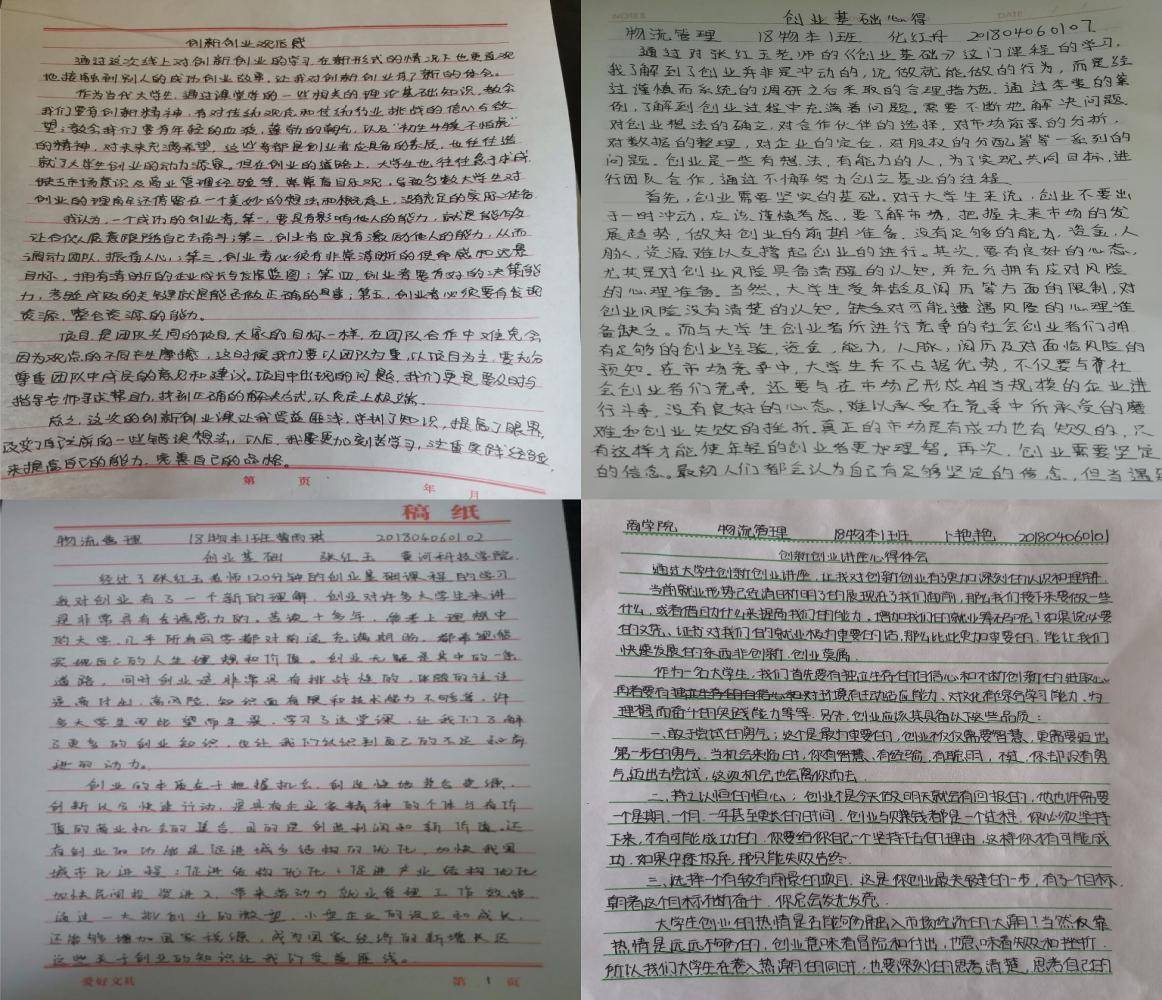 创新创业观后感
通过这次线上对创新创业的学习,在新形式的情况下也更直观
地接触到别人的成功创业故事,让我对创新创业有了新的体会。
作为当代大学生,通过课堂学的一些相关的理论基础知识,教会
我们要有创新精神,有对传统观念和传统行业挑战的信心与欲
望;教会我们要有年轻的血液,蓬勃的朝气,以及“初生牛犊不怕虎”
的精神,对未来充满希望,这些都是创业者应具备的素质,也往往造
就了大学生创业的动力源泉。但在创业的道路上,大学生也往往急于求成,
缺乏市场意识及商业管理经验等,常常盲目乐观,导致多数大学生对
创业的理解还停留在一个美妙的想法和概念上,没有充足的实际准备。
我认为,一个成功的创业者,第一,要具有影响他人的能力,就是能够
让合伙人愿意跟随自己去奋斗;第二,创业者应具有激励他人的能力,从而
调动团队,振奋人心;第三,创业者必须有非常清晰的使命感和远景
目标,拥有清晰的企业成长与发展蓝图;第四,创业者要有好的决策能
力,考验成败的关键就是能否做正确的决策;第五,创业者必须要有资源
资源,整合资源的能力。
项目是团队共同的项目,大家的目标一样,在团队合作中难免会
因为观点的不同产生摩擦,这时候我们要以团队为重,以项目为主,要充分
尊重团队中成员的意见和建议。项目中出现的问题,我们更是要及时与
指导老师寻求帮助,找到正确的解决方式,以免走上极端。
总之,这次的创新创业课让我受益匪浅,学到了知识,提高了眼界,
改变了自己之前的一些错误想法,以后,我需更加刻苦学习,注重实践经验,
来提高自己的能力,完善自己的品格。
第 页
年 月
NOTES
DATE
创业基础心得
物流管理 18物本1班 化红丹 201804060107
通过对张红玉老师的《创业基础》这门课程的学习,
我了解到了创业并非是冲动的,说做就能做的行为,而是经
过谨慎而系统的调研之后采取的合理措施。通过李雯的案
例,了解到创业过程中充满着问题。需要不断地解决问题,
对创业想法的确立,对合作伙伴的选择,对市场前景的分析,
对数据的整理,对企业的定位,对股权的分配等等一系列的
问题。创业是一些有想法,有能力的人,为了实现共同目标,进
行团队合作,通过不懈努力创立基业的过程。
首先,创业需要坚实的基础。对于大学生来说,创业不要出
于一时冲动,应该谨慎考虑,要了解市场,把握未来市场的发
展趋势,做好创业的前期准备。没有足够的能力,资金,人
脉,资源难以支撑起创业的进行。其次,要有良好的心态,
尤其是对创业风险具备清醒的认知,并充分拥有应对风险
的心理准备。当然,大学生受年龄及阅历等方面的限制,对
创业风险没有清楚的认知,缺乏对可能遭遇风险的心理准
备缺乏。而与大学生创业者所进行竞争的社会创业者们拥
有足够的创业经验,资金,能力,人脉,阅历及对面临风险的
预知。在市场竞争中,大学生并不占据优势,不仅要与社
会创业者们竞争,还要与在市场已形成相当规模的企业进
行斗争,没有良好的心态,难以承受在竞争中所承受的磨
难和创业失败的挫折。真正的市场是有成功也有失败的,只
有这样才能使年轻的创业者更加理智。再次,创业需要坚定
的信念。最初人们都会认为自己有足够坚定的信念,但当遇到
稿纸
物流管理 18物本1班 曹雨琪 201804060102
创业基础 张红玉 黄河科技学院
经过了张红玉老师120分钟的创业基础课程的学习
我对创业有了一个新的理解,创业对许多大学生来讲
是非常具有诱惑力的。苦读十多年,终考上理想中
的大学,几乎所有同学都对前途充满期盼,都希望能
实现自己的人生理想和价值。创业无疑是其中的一条
道路,同时创业是非常具有挑战性的,伴随的往往
是高付出,高风险,知识面有限和技术能力不够等,许
多大学生因此望而生畏。学习了这堂课,让我们了解
了更多的创业知识,也让我们认识到自己的不足和前
进的动力。
创业的本质在于把握机会,创造性地整合资源,
创新以及快速行动,是具有企业家精神的个体与有价
值的商业机会的结合,目的是创造利润和新价值。还
有创业的功能是促进城乡结构的优化,加快我国
城市化进程;促进结构优化,促进产业结构优化
加快民间投资进入,带来劳动力就业管理工作效能
通过一大批创业的激发,小型企业的设立和成长,
还能够增加国家税源,成为国家经济的新增长点
这些关于创业的知识让我们受益匪浅。
爱好文具
第 1 页
商学院 物流管理 18物本1班 卜艳艳 201804060101
创新创业讲座心得体会
通过大学生创新创业讲座,让我对创新创业有了更加深刻的认识和理解。
当前就业形势已经清晰明了的展现在了我们面前,那么我们接下来要做一些
什么,或者借助什么来提高我们的能力,增加我们的就业筹码呢?如果说必要
的文凭、证书对我们的就业极为重要的话,那么比此更加重要的,能让我们
快速发展的东西非创新、创业莫属。
作为一名大学生,我们首先要有独立生存的自信心和不断创新的进取心,
再者要有对环境有主动适应能力、对文化有综合学习能力、为
理想而奋斗的实践能力等等。另外,创业应该具备以下这些品质:
一、敢于尝试的勇气;这个是最为重要的,创业不仅仅需要智慧,更需要迈出
第一步的勇气。当机会来临时,你有智慧、有经验、有聪明,不过,你却没有勇
气迈出去尝试,这次机会也会离你而去。
二、持之以恒的恒心;创业不是今天做,明天就会有回报的,他也许需要
一个星期、一个月、一年甚至更长的时间,创业与赚钱都是一个过程,你必须坚持
下来,才有可能成功的。你要给你自己一个坚持下去的理由,这样你才有可能成
功,如果中途放弃,那只能失败告终。
三、选择一个有较有前景的项目,这是你创业最关键的一步,有了个目标,
朝着这个目标不断奋斗,你总会发光发亮。
大学生创业的热情是否能够融入市场经济的大潮?当然仅靠
热情是远远不够的,创业意味着冒险和付出,也意味着失败和挫折,
所以我们大学生在卷入热潮的同时,也要深刻的思考清楚,思考自己的